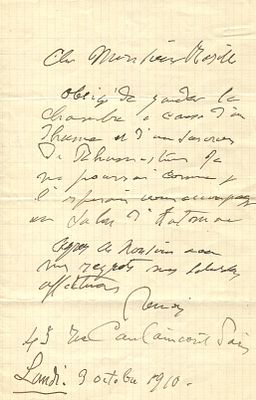 Cher Monsieur
obligé de garder la
chambre à cause d'un
rhume et d'un
de Rhumatisme je
ne pourrai comme je
l'espérais vous accompagner
au Salon d'Automne
agréez cher Monsieur avec
mes regrets mes salutations
affectueuses
Renoir
43 rue Caulaincourt Paris
Lundi. 9 octobre 1910.